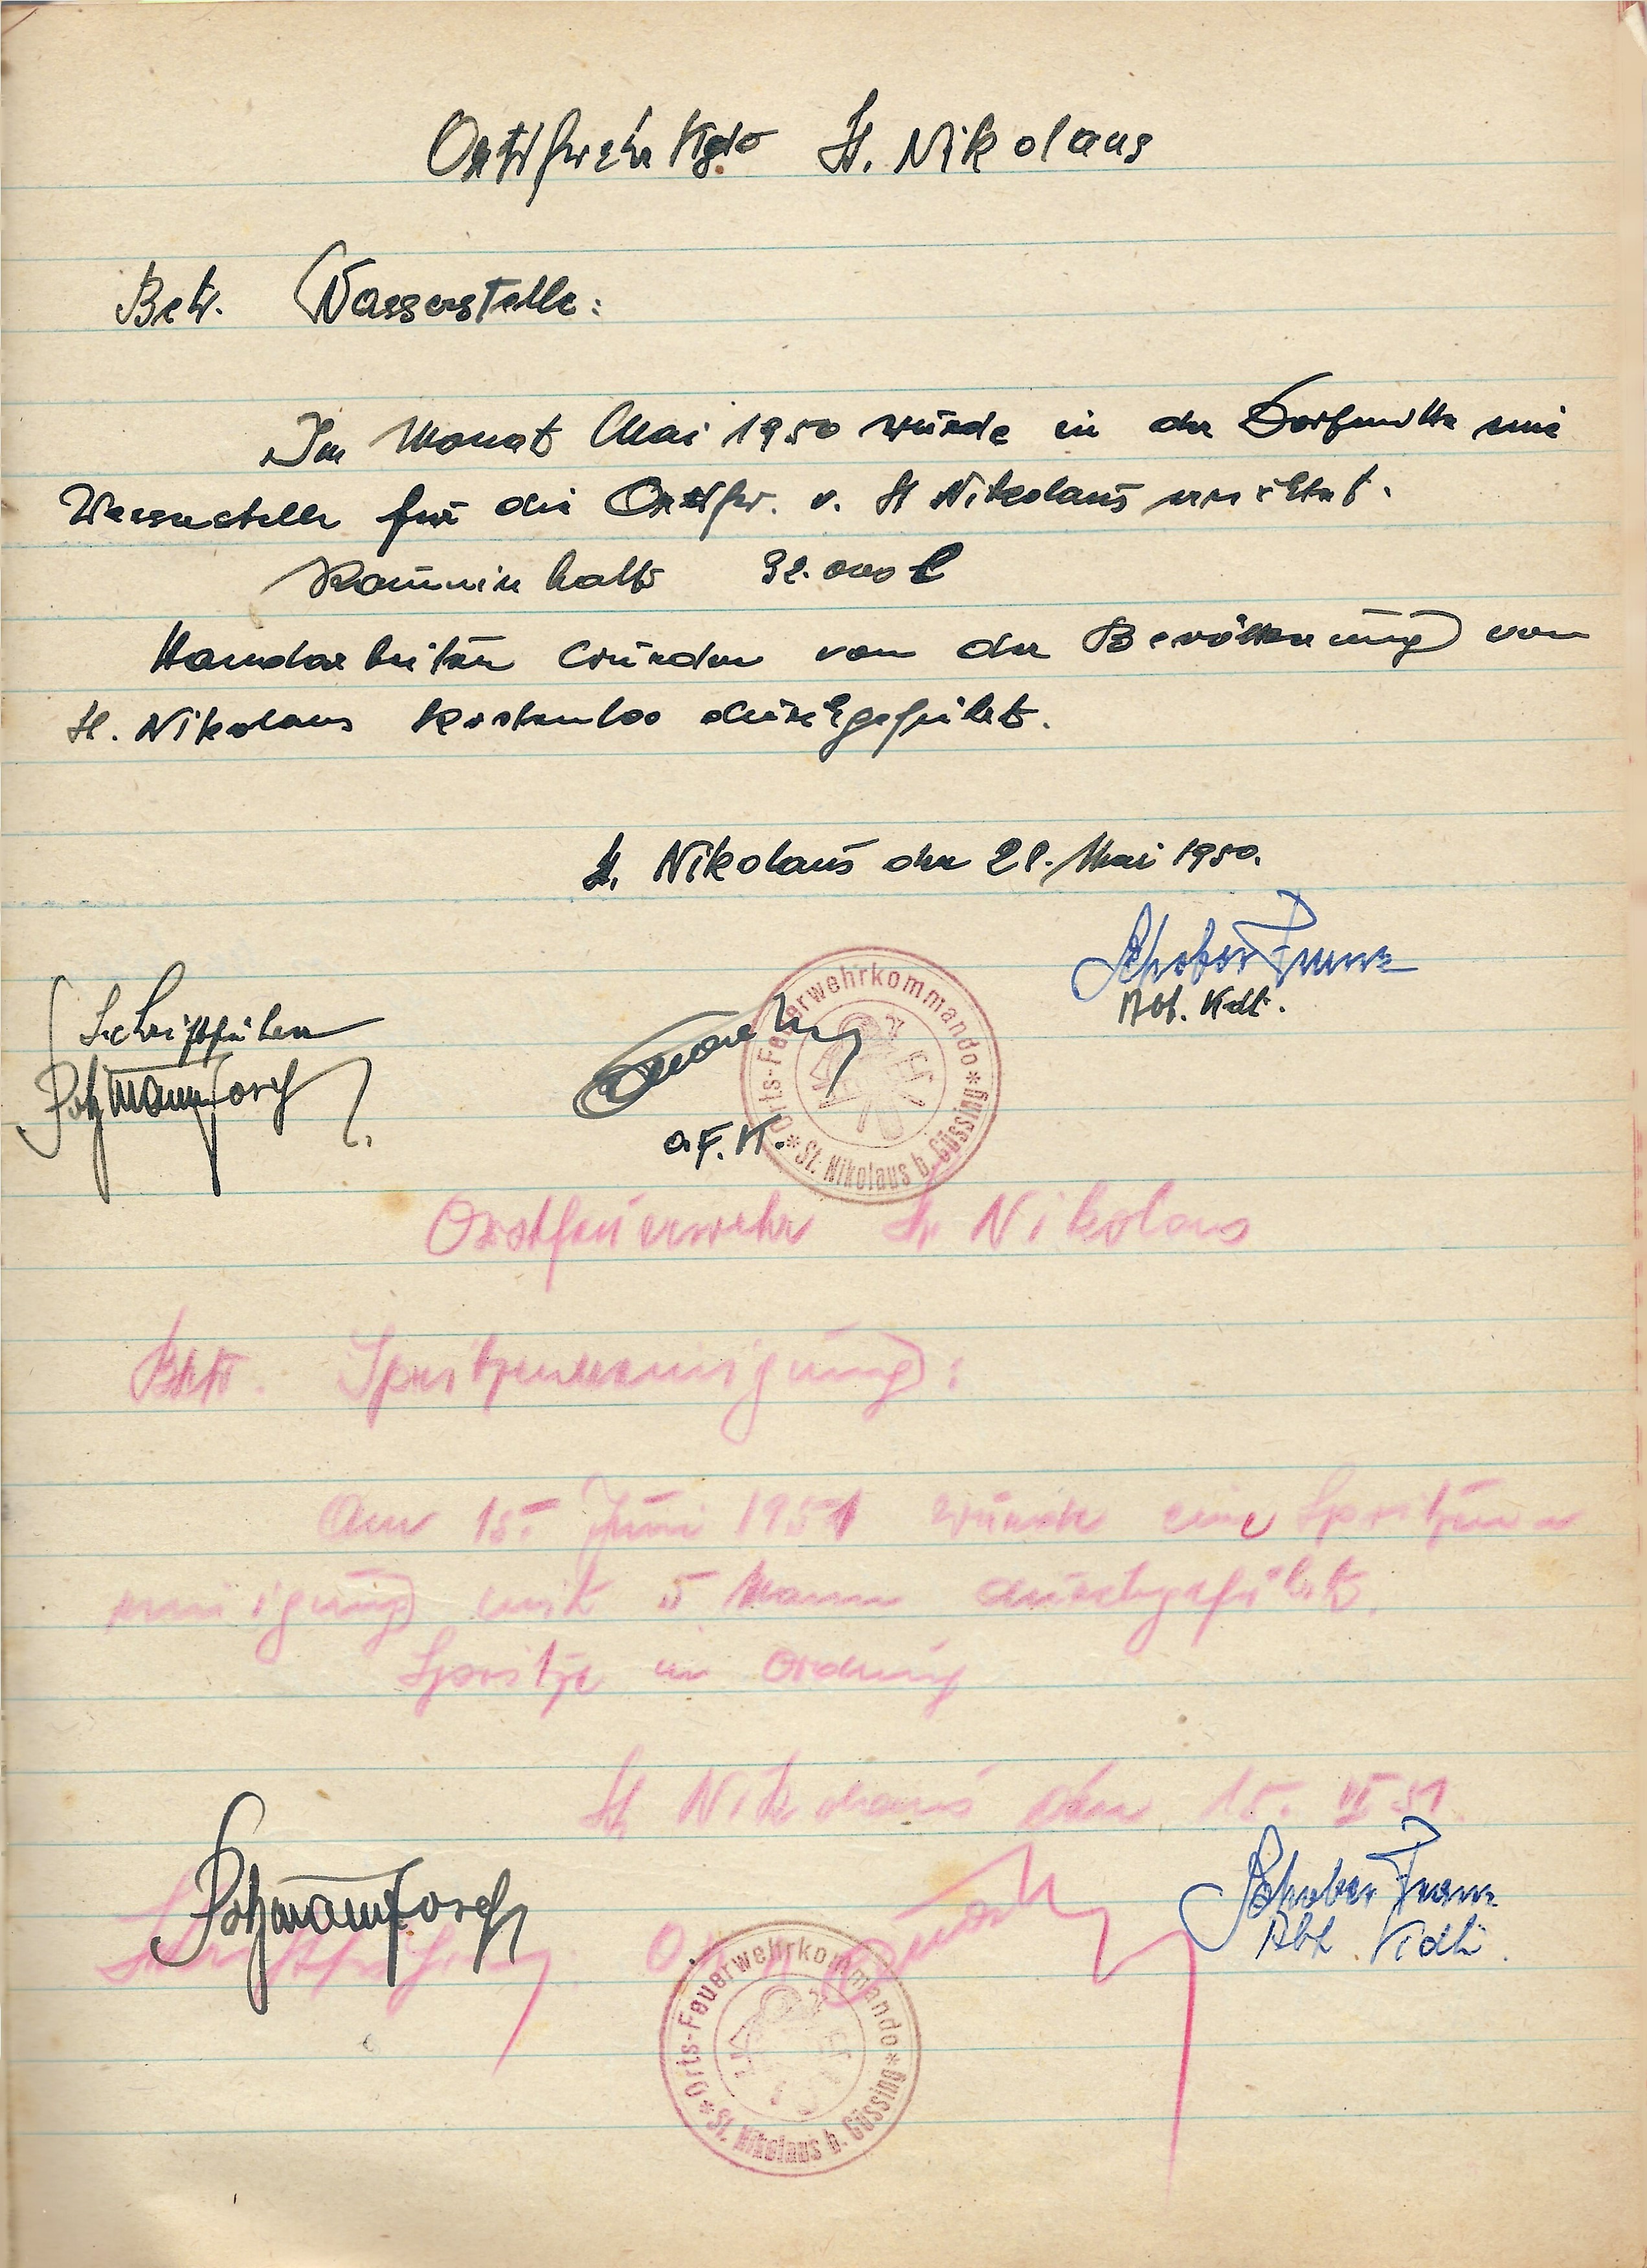 Ortsfwehr Kgdo St. Nikolaus
Betr. Wasserstelle:
Im Monat Mai 1950 wurde in der Dorfmitte eine
Wasserstelle für die Ortsfw. v. St Nikolaus errichtet.
Rauminhalt 32.000 l
Handarbeiten wurden von der Bevölkerung von
St. Nikolaus kostenlos durchgeführt.
St. Nikolaus den 28. Mai 1950.
Schober Franz
Abt. Kdt.
Schriftführer
O.F.K.
Orts-Feuerwehrkommando
St. Nikolaus b. Güssing
Ortsfeuerwehr St. Nikolaus
Betr. Spritzenreinigung:
Am 15. Juni 1951 wurde eine Spritzen=
reinigung mit 5 Mann durchgeführt.
Spritze in Ordnung
St. Nikolaus den 15. VI 51
Schober Franz
Abt. Kdt.
Schriftführer
Orts-Feuerwehrkommando
St. Nikolaus b. Güssing